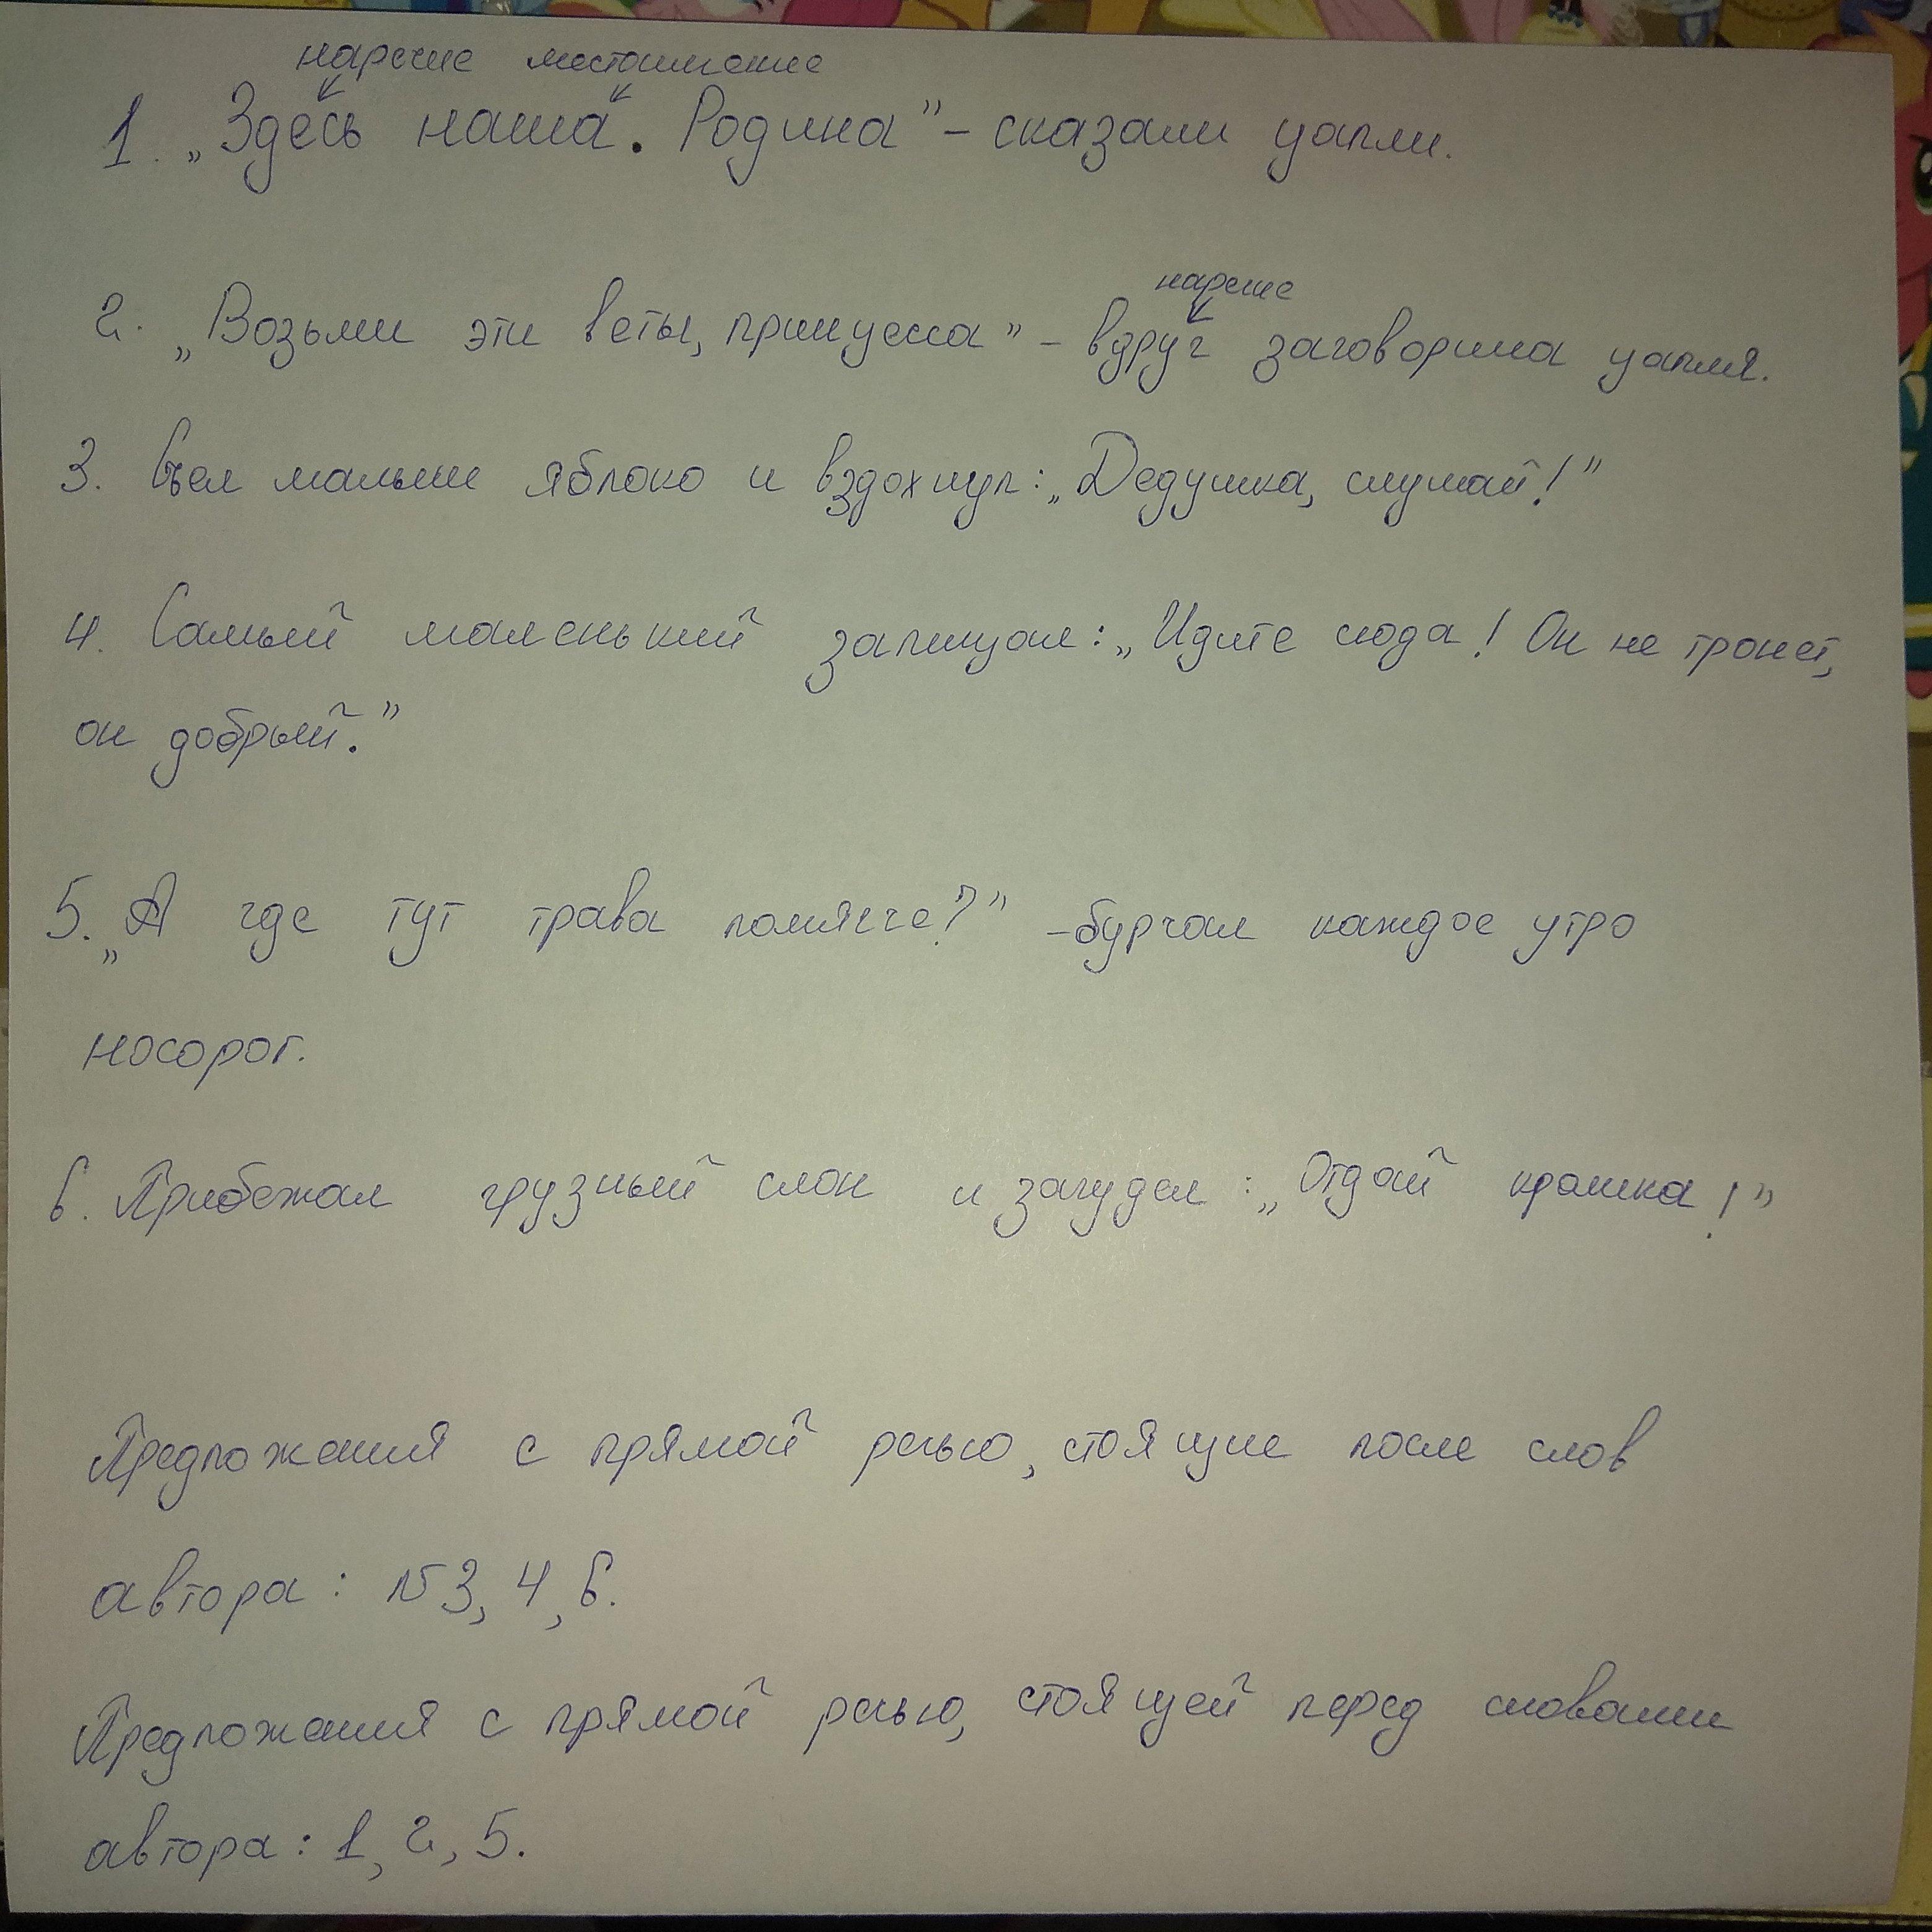 наречие местоимение
1. „Здесь наша. Родина" - сказали цапли.
наречие
2. „Возьми эти веты, принцесса" - вдруг заговорила цапля.
3. Съел малыш яблоко и вздохнул: „Дедушка, слушай!"
4. Самый маленький запищал: „Идите сюда! Он не тронет,
он добрый."
5. „А где тут трава помягче?" - бурчал каждое утро
носорог.
6. Прибежал грузный слон и загудел: „Отдай крошка!"
Предложения с прямой речью, стоящие после слов
автора: №3, 4, 6.
Предложения с прямой речью, стоящей перед словами
автора: 1, 2, 5.